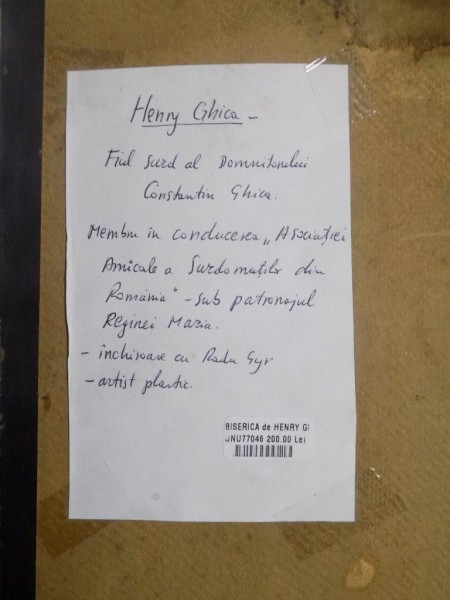 Henry Ghica -
Fiul surd al Domnitorului
Constantin Ghica.
Membru în conducerea „Asociației
Amicale a Surdomuților din
România" - sub patronajul
Reginei Maria.
- închisoare cu Radu Gyr
- artist plastic.
BISERICA de HENRY GI
JNU77046 200.00 Lei